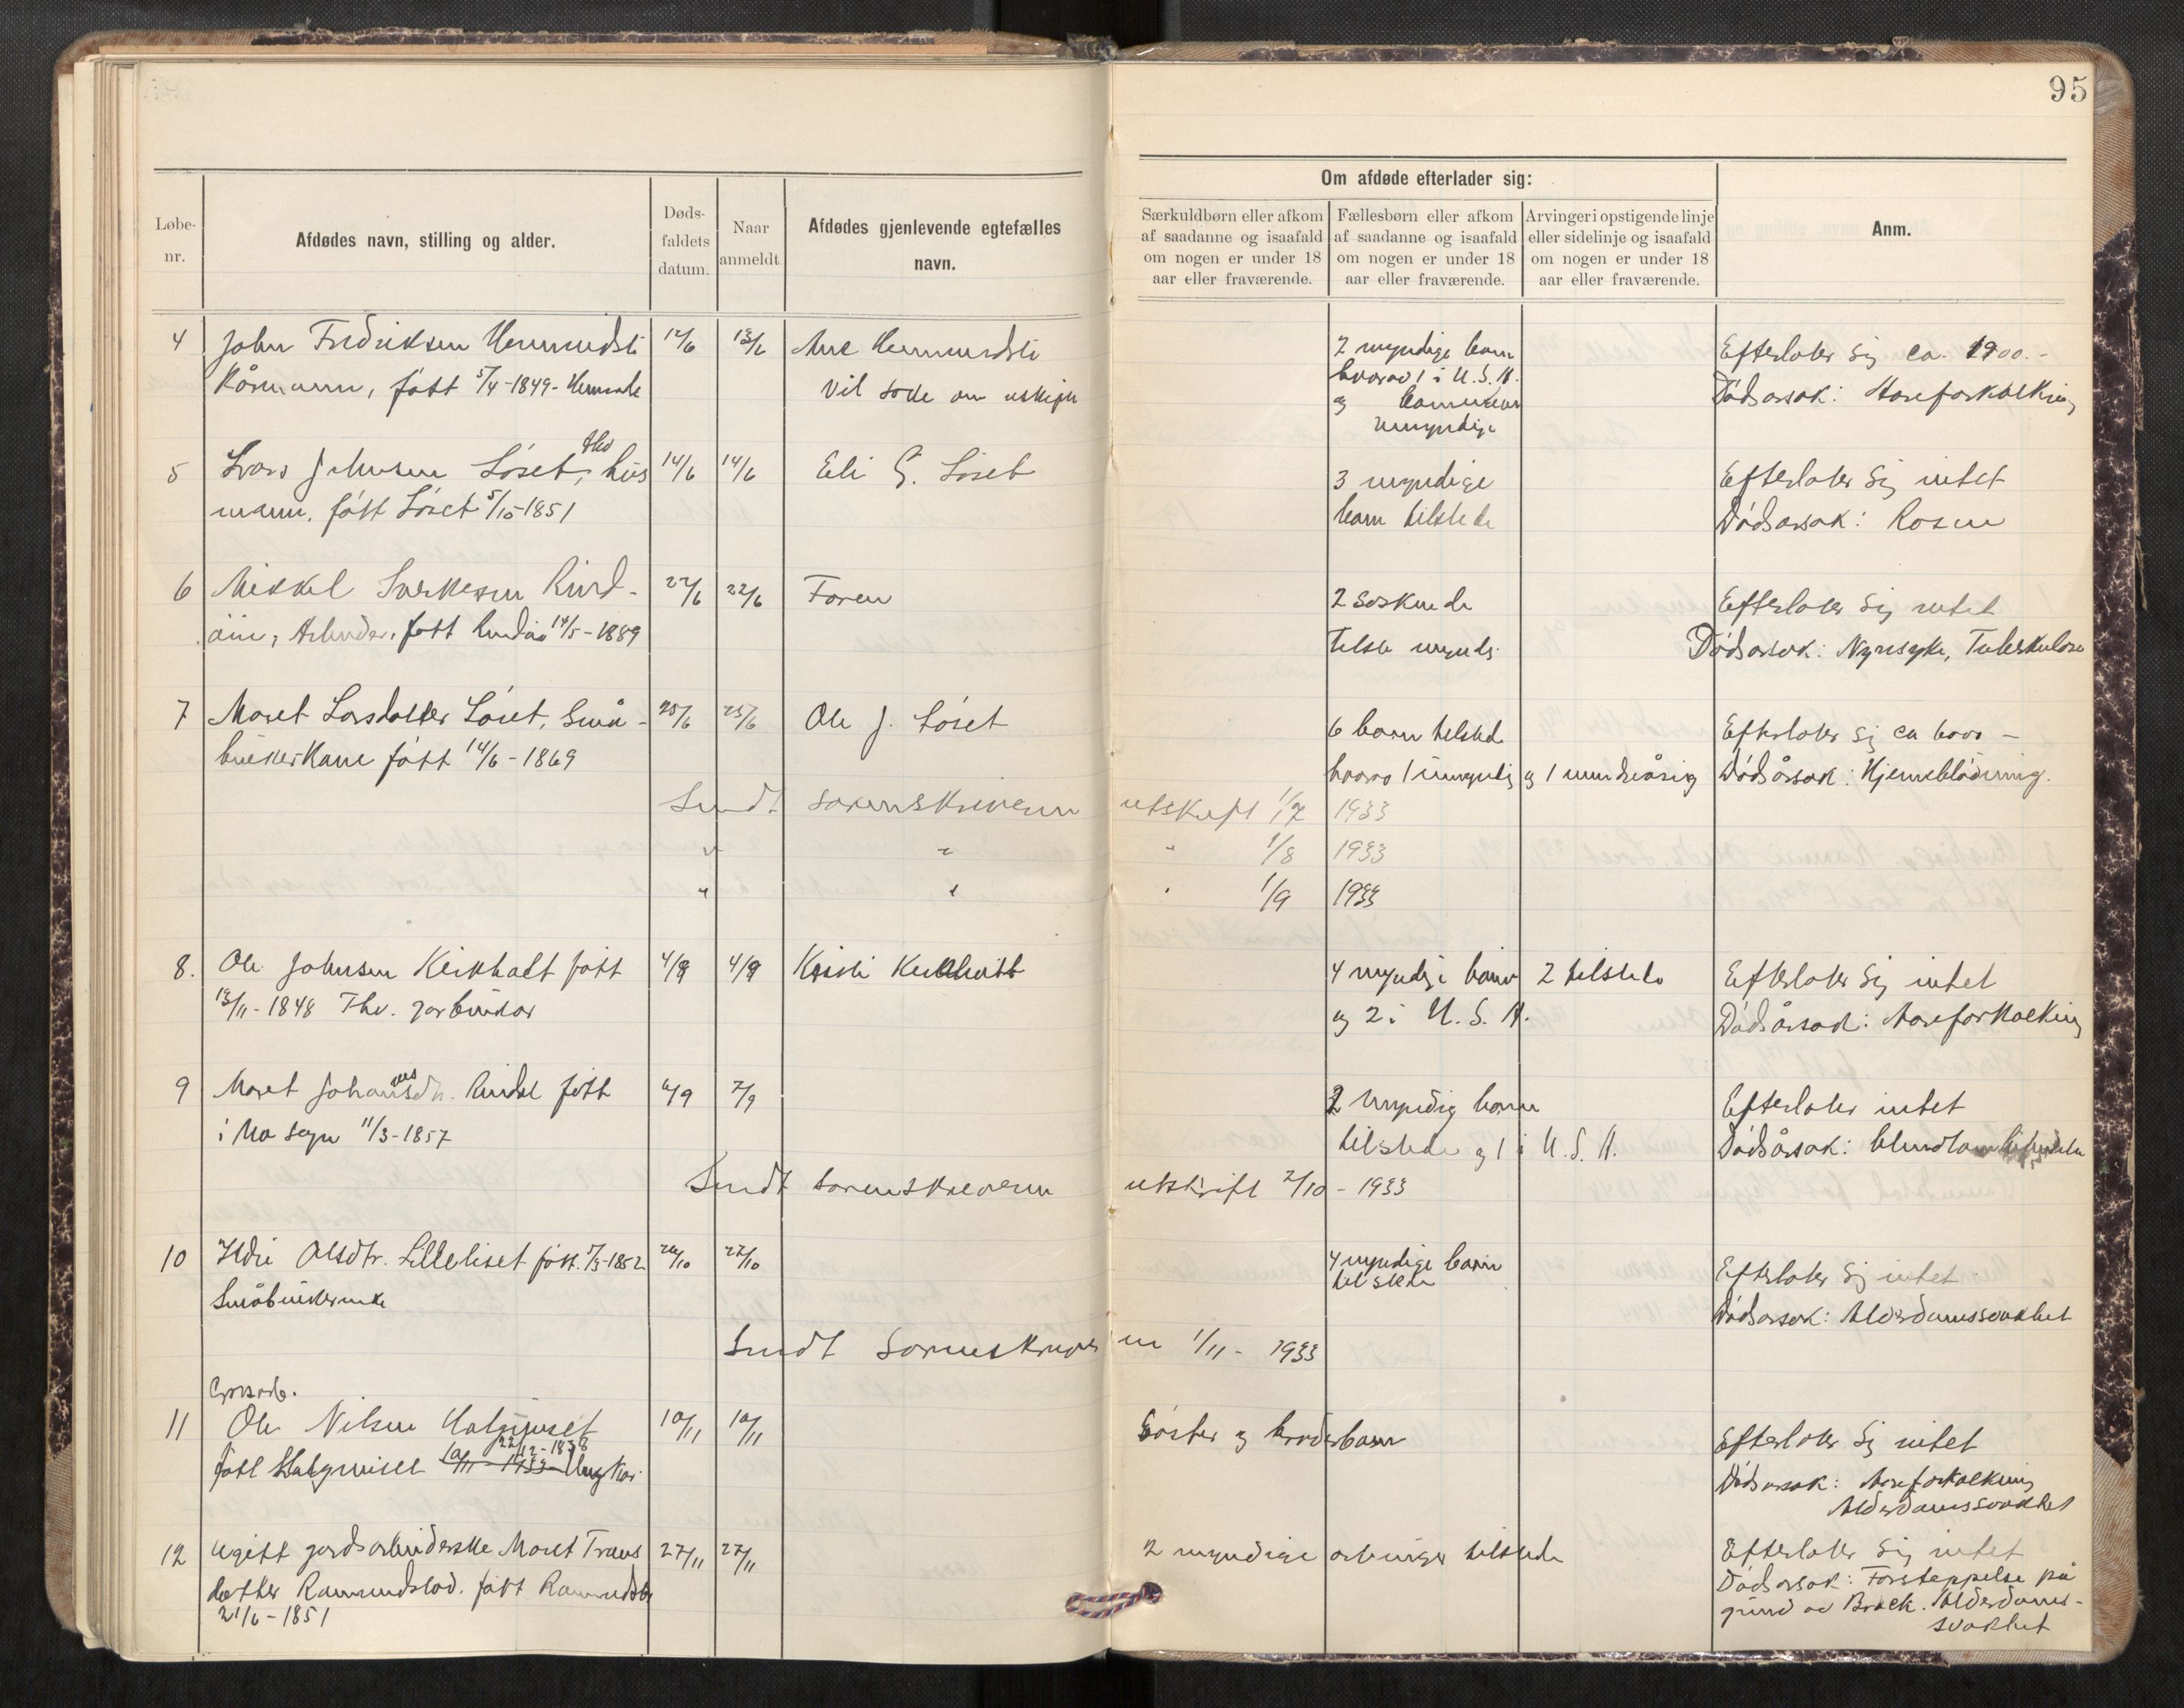 95
Løbe-
nr.
Afdødes navn, stilling og alder.
Døds-
faldets
datum.
Naar
anmeldt.
Afdødes gjenlevende egtefælles
navn.
Om afdøde efterlader sig:
Særkuldbørn eller afkom
af saadanne og isaafald
om nogen er under 18
aar eller fraværende.
Fællesbørn eller afkom
af saadanne og isaafald
om nogen er under 18
aar eller fraværende.
Arvinger i opstigende linje
eller sidelinje og isaafald
om nogen er under 18
aar eller fraværende.
Anm.
4 John Fredriksen 12/6 13/6 2 myndige barn Efterlater sig ca. 1900.-
Kårmann, født 5/4-1849- Vil søke om uskifte hvorav 1 i U.S.A. Dødsårsak: Åreforkalkning
og barnebarn
umyndige
5 Lars Johnsen Løset, fhv hus 14/6 14/6 Eli G. Løset 3 myndige Efterlater sig intet
mann, født Løset 5/10-1851 barn tilstede Dødsårsak: Rosen
6 Mikkel Rind- 22/6 22/6 Faren 2 søskende Efterlater sig intet
Arbeider, født 14/5-1889 Dødsårsak: Nyresyke, Tuberkulose
7 Maret Larsdatter Løset, Små- 25/6 25/6 Ole J. Løset 6 barn tilstede Efterlater sig ca
brukerkone født 14/6-1869 hvorav 1 umyndig og 1 mindreårig Dødsårsak: Hjerneblødning.
Sendt sorenskriveren utskrift 1/7 1933
" " " 1/8 1933
" " " 1/9 1933
8. Ole Johnsen Kirkholt født 4/9 4/9 Kirkholt 4 myndige barn 2 tilstede Efterlater sig intet
13/11-1848 Fhv. gårbruker og 2 i U.S.A. Dødsårsak: Åreforkalkning
9 Maret Johannesdtr. Rindal født 6/9 7/9 2 myndig barn Efterlater intet
i Mo sogn 11/3-1857 tilstede og 1 i U.S.A. Dødsårsak: Blindtarmbetendelse
Sendt sorenskriveren utskrift 2/10 - 1933
10 Ildri Olsdtr. Lilleliset født -1852 26/10 27/10 4 myndige barn Efterlater sig intet
Småbrukerenke tilstede Dødsårsak: Alderdomssvakhet
Sendt Sorenskriveren 1/11- 1933
11 Ole Nilsen 10/11 10/11 Søster og broderbarn Efterlater sig intet
født 22/12-1838 10/11-1933 Ungkar Dødsårsak: Åreforkalkning
Alderdomssvakhet
12 Ugift gårdsarbeiderske Maret Trons 27/11 27/11 2 myndige arvinger tilstede Efterlater sig intet
datter født Dødsårsak: Forstoppelse på
21/6-1851 grund av Brock. Alderdoms-
svakhet